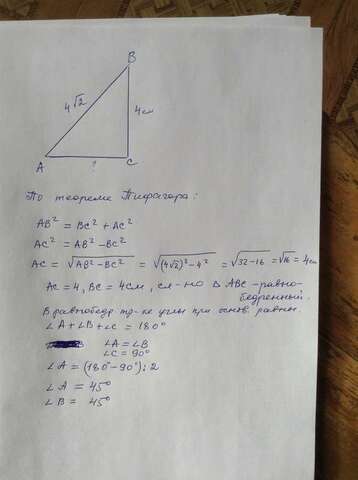 B
4√2
4см
A
?
C
По теореме Пифагора:
AB² = BC² + AC²
AC² = AB² - BC²
AC = √(AB² - BC²) = √((4√2)² - 4²) = √(32 - 16) = √16 = 4см
AC = 4, BC = 4см, сл-но △ ABC - равно-
бедренный.
В равнобедр тр-ке углы при основ. равны.
∠A + ∠B + ∠C = 180°
∠A = ∠B
∠C = 90°
∠A = (180° - 90°) : 2
∠A = 45°
∠B = 45°